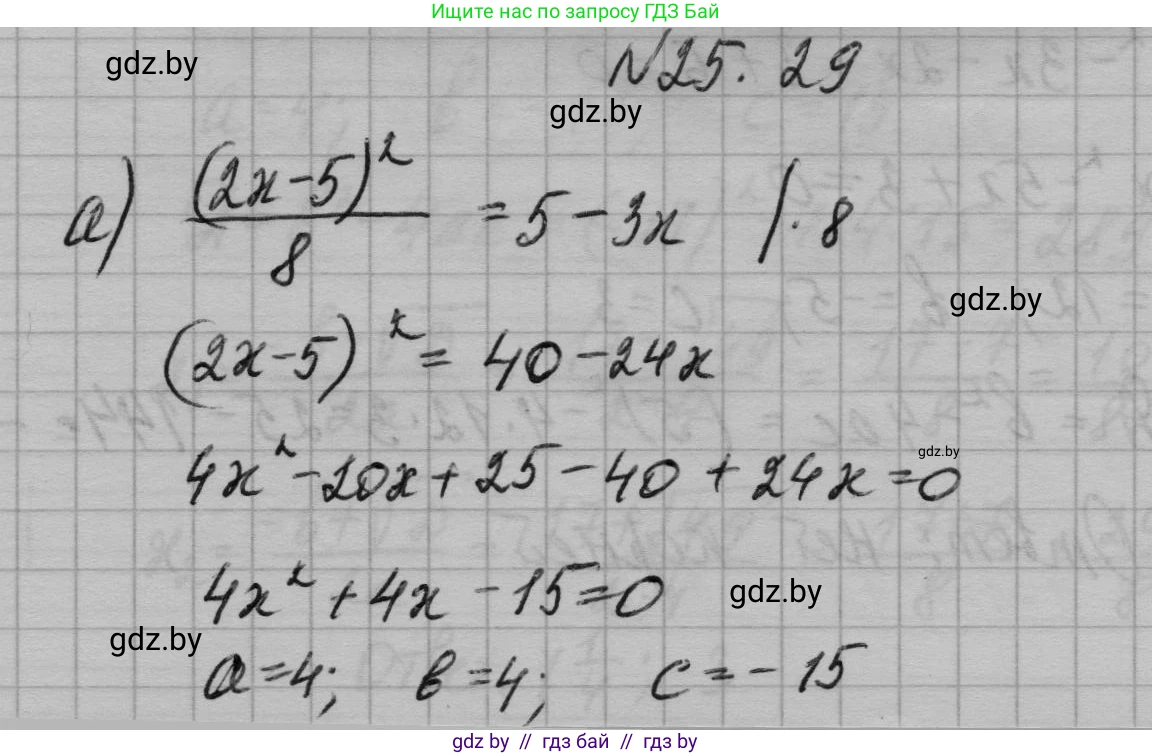 Ищите нас по запросу ГДЗ Бай
gdz.by
N 25. 29
gdz.by
а) (2x-5)² / 8 = 5 - 3x |· 8
gdz.by
(2x-5)² = 40 - 24x
gdz.by
4x² - 20x + 25 - 40 + 24x = 0
4x² + 4x - 15 = 0
gdz.by
gdz.by
a = 4; b = 4; c = - 15
gdz by // гдз бай // гдз by